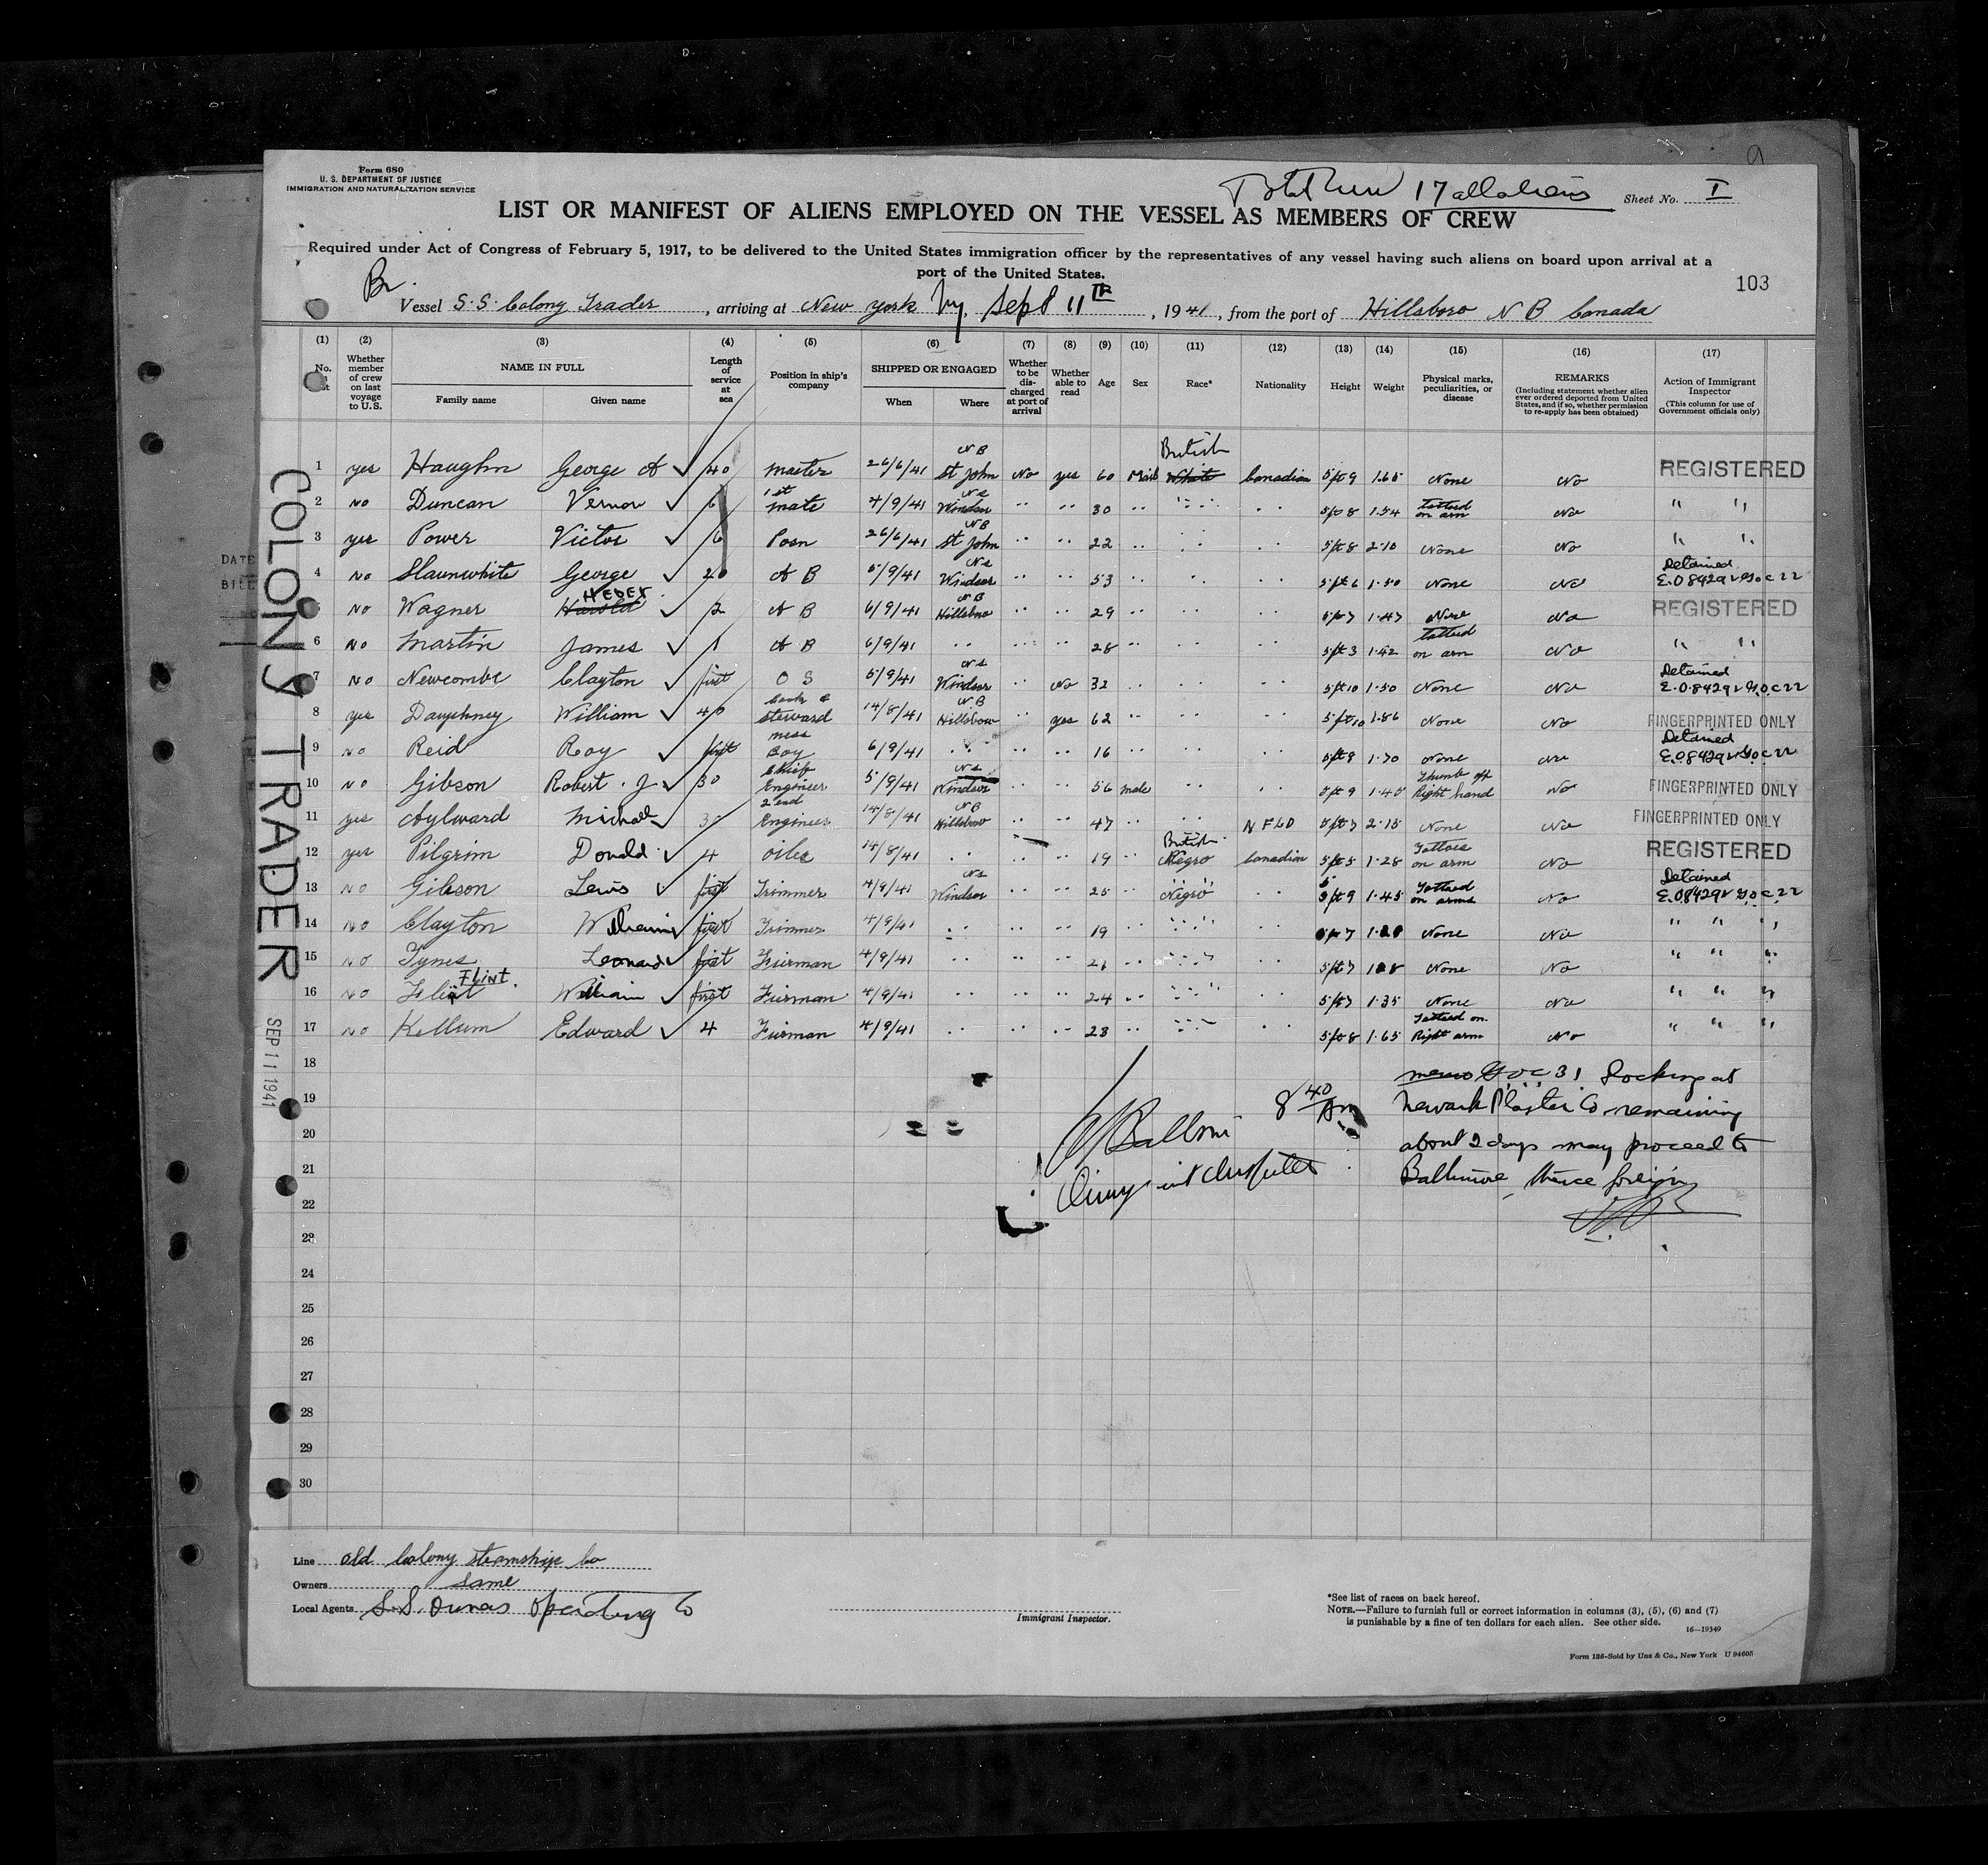 Form 680
U. S. DEPARTMENT OF JUSTICE
IMMIGRATION AND NATURALIZATION SERVICE
Total Crew 17 all aliens
Sheet No. I
LIST OR MANIFEST OF ALIENS EMPLOYED ON THE VESSEL AS MEMBERS OF CREW
Required under Act of Congress of February 5, 1917, to be delivered to the United States immigration officer by the representatives of any vessel having such aliens on board upon arrival at a
port of the United States.
103
Br.
Vessel S.S. Colony Trader, arriving at New York Ny, Sept 11th, 1941, from the port of Hillsboro N B Canada
(1) (2) (3) (4) (5) (6) (7) (8) (9) (10) (11) (12) (13) (14) (15) (16) (17)
No. Whether member of crew on last voyage to U.S. NAME IN FULL Family name Given name Length of service at sea Position in ship's company SHIPPED OR ENGAGED When Where Whether to be discharged at port of arrival Whether able to read Age Sex Race* Nationality Height Weight Physical marks, peculiarities, or disease REMARKS (Including statement whether alien ever ordered deported from United States, and if so, whether permission to re-apply has been obtained) Action of Immigrant Inspector (This column for use of Government officials only)
1 yes Haughn George A 40 master 26/6/41 N B St John No yes 60 Male White British Canadian 5 ft 9 1.65 None No REGISTERED
2 No Duncan Vernon 6 1st mate 4/9/41 N S Windsor " " 30 " " " 5 ft 8 1.54 tattued on arm No " "
3 yes Power Victor 6 Bosn 26/6/41 N B St John " " 22 " " " 5 ft 8 2.10 None No " "
4 No Slaunwhite George 20 A B 5/9/41 N S Windsor " " 53 " " " 5 ft 6 1.50 None No Detained E.O. 8429
5 No Wagner Harold HEBER 2 A B 6/9/41 N B Hillsboro " " 29 " " " 5 ft 7 1.47 None No REGISTERED
6 No Martin James 1 A B 6/9/41 " " " 28 " " " 5 ft 3 1.42 tattued on arm No " "
7 No Newcombe Clayton first O S 5/9/41 N S Windsor " No 32 " " " 5 ft 10 1.50 None No Detained E.O. 8429
8 yes Dauphney William 40 Cook & steward 14/8/41 N B Hillsboro " yes 62 " " " 5 ft 10 1.86 None No FINGERPRINTED ONLY
9 No Reid Roy first mess Boy 6/9/41 " " " 16 " " 5 ft 8 1.70 None No Detained E.O. 8429
10 No Gibson Robert. J 30 Chief Engineer 5/9/41 N S Windsor " " 56 male " " 5 ft 9 1.40 Thumb off Right hand No FINGERPRINTED ONLY
11 yes Aylward Michall 2end Engineer 14/8/41 N B Hillsboro " " 47 " N F L D 5 ft 7 2.15 None No FINGERPRINTED ONLY
12 yes Pilgrim Donald 4 oiler 14/8/41 " " " 19 " British Negro Canadian 5 ft 5 1.28 Tattoes on arm No REGISTERED
13 No Gibson Lewis first Trimmer 4/9/41 N S Windsor " " 25 Negro " 5 ft 9 1.45 Tattued on arms No Detained E.O. 8429
14 No Clayton William first Trimmer 4/9/41 " " " 19 " " 5 ft 7 None No " " "
15 No Tynes Leonard first Fiirman 4/9/41 " " " " " 5 ft 7 None No " " "
16 No Flint FLINT. William first Fiirman 4/9/41 " " " 24 " " " 5 ft 7 1.35 None No " " "
17 No Kellum Edward 4 Fiirman 4/9/41 " " " 23 " " " 5 ft 8 1.65 Tattued on Right arm No " " "
18
19
20
21
22
23
24
25
26
27
28
29
30
8 40 Am
Docking at
Newark Plaster Co remaining
about 2 days may proceed to
Baltimore, thence foreign
COLONY TRADER
SEP 11 1941
DATE
BILL
Line Old Colony Steamship Co
Owners Same
Local Agents S.S. Operating Co
Immigrant Inspector.
*See list of races on back hereof.
NOTE.—Failure to furnish full or correct information in columns (3), (5), (6) and (7)
is punishable by a fine of ten dollars for each alien. See other side.
16—19349
Form 136-Sold by Uns & Co., New York U 94605